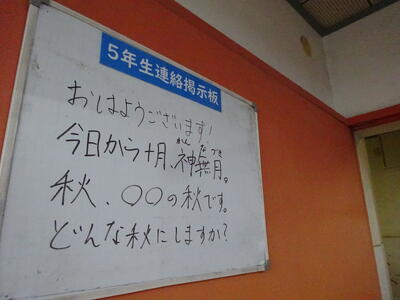 5年生連絡掲示板
おはようございます!
今日から十月、神無月。
かんなづき
秋、○○の秋です。
どんな秋にしますか?